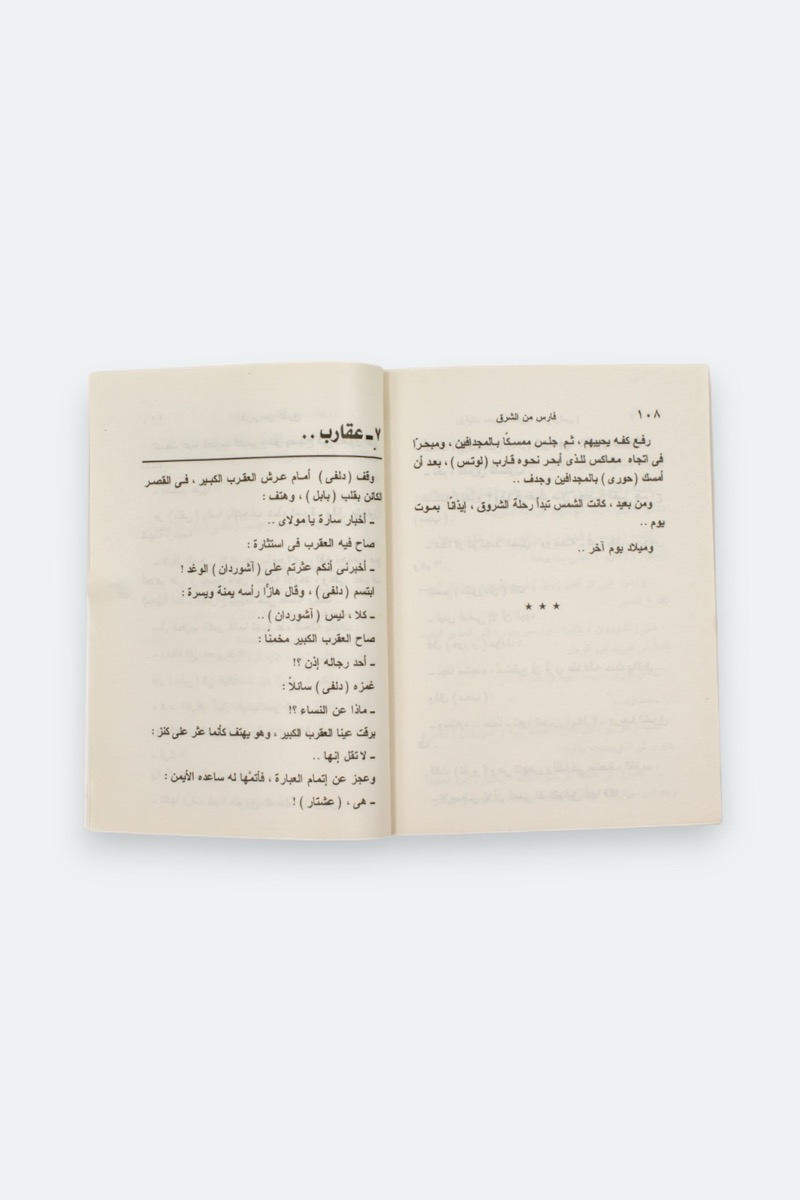 ١٠٨
فارس من الشرق
رفع كفه يحييهم ، ثم جلس ممسكًا بالمجدافين ، ومبحرًا
فى اتجاه معاكس للذى أبحر نحوه قارب (لوتس) ، بعد أن
أمسك (حورى) بالمجدافين وجدف ..
ومن بعيد ، كانت الشمس تبدأ رحلة الشروق ، إيذانًا بموت
يوم ..
وميلاد يوم آخر ..
★ ★ ★
٧ـ عقارب ..
وقف (دلفى) أمام عرش العقرب الكبير ، فى القصر
الكائن بقلب (بابل) ، وهتف :
ـ أخبار سارة يا مولاى ..
صاح فيه العقرب فى استثارة :
ـ أخبرنى أنكم عثرتم على (آشوردان) الوغد !
ابتسم (دلفى) ، وقال هازًّا رأسه يمنة ويسرة :
ـ كلا ، ليس (آشوردان) ..
صاح العقرب الكبير مخمنًا :
ـ أحد رجاله إذن ؟!
غمزه (دلفى) سائلاً :
ـ ماذا عن النساء ؟!
برقت عينا العقرب الكبير ، وهو يهتف كأنما عثر على كنز :
ـ لا تقل إنها ..
وعجز عن إتمام العبارة ، فأتمها له ساعده الأيمن :
ـ هى ، (عشتار) !